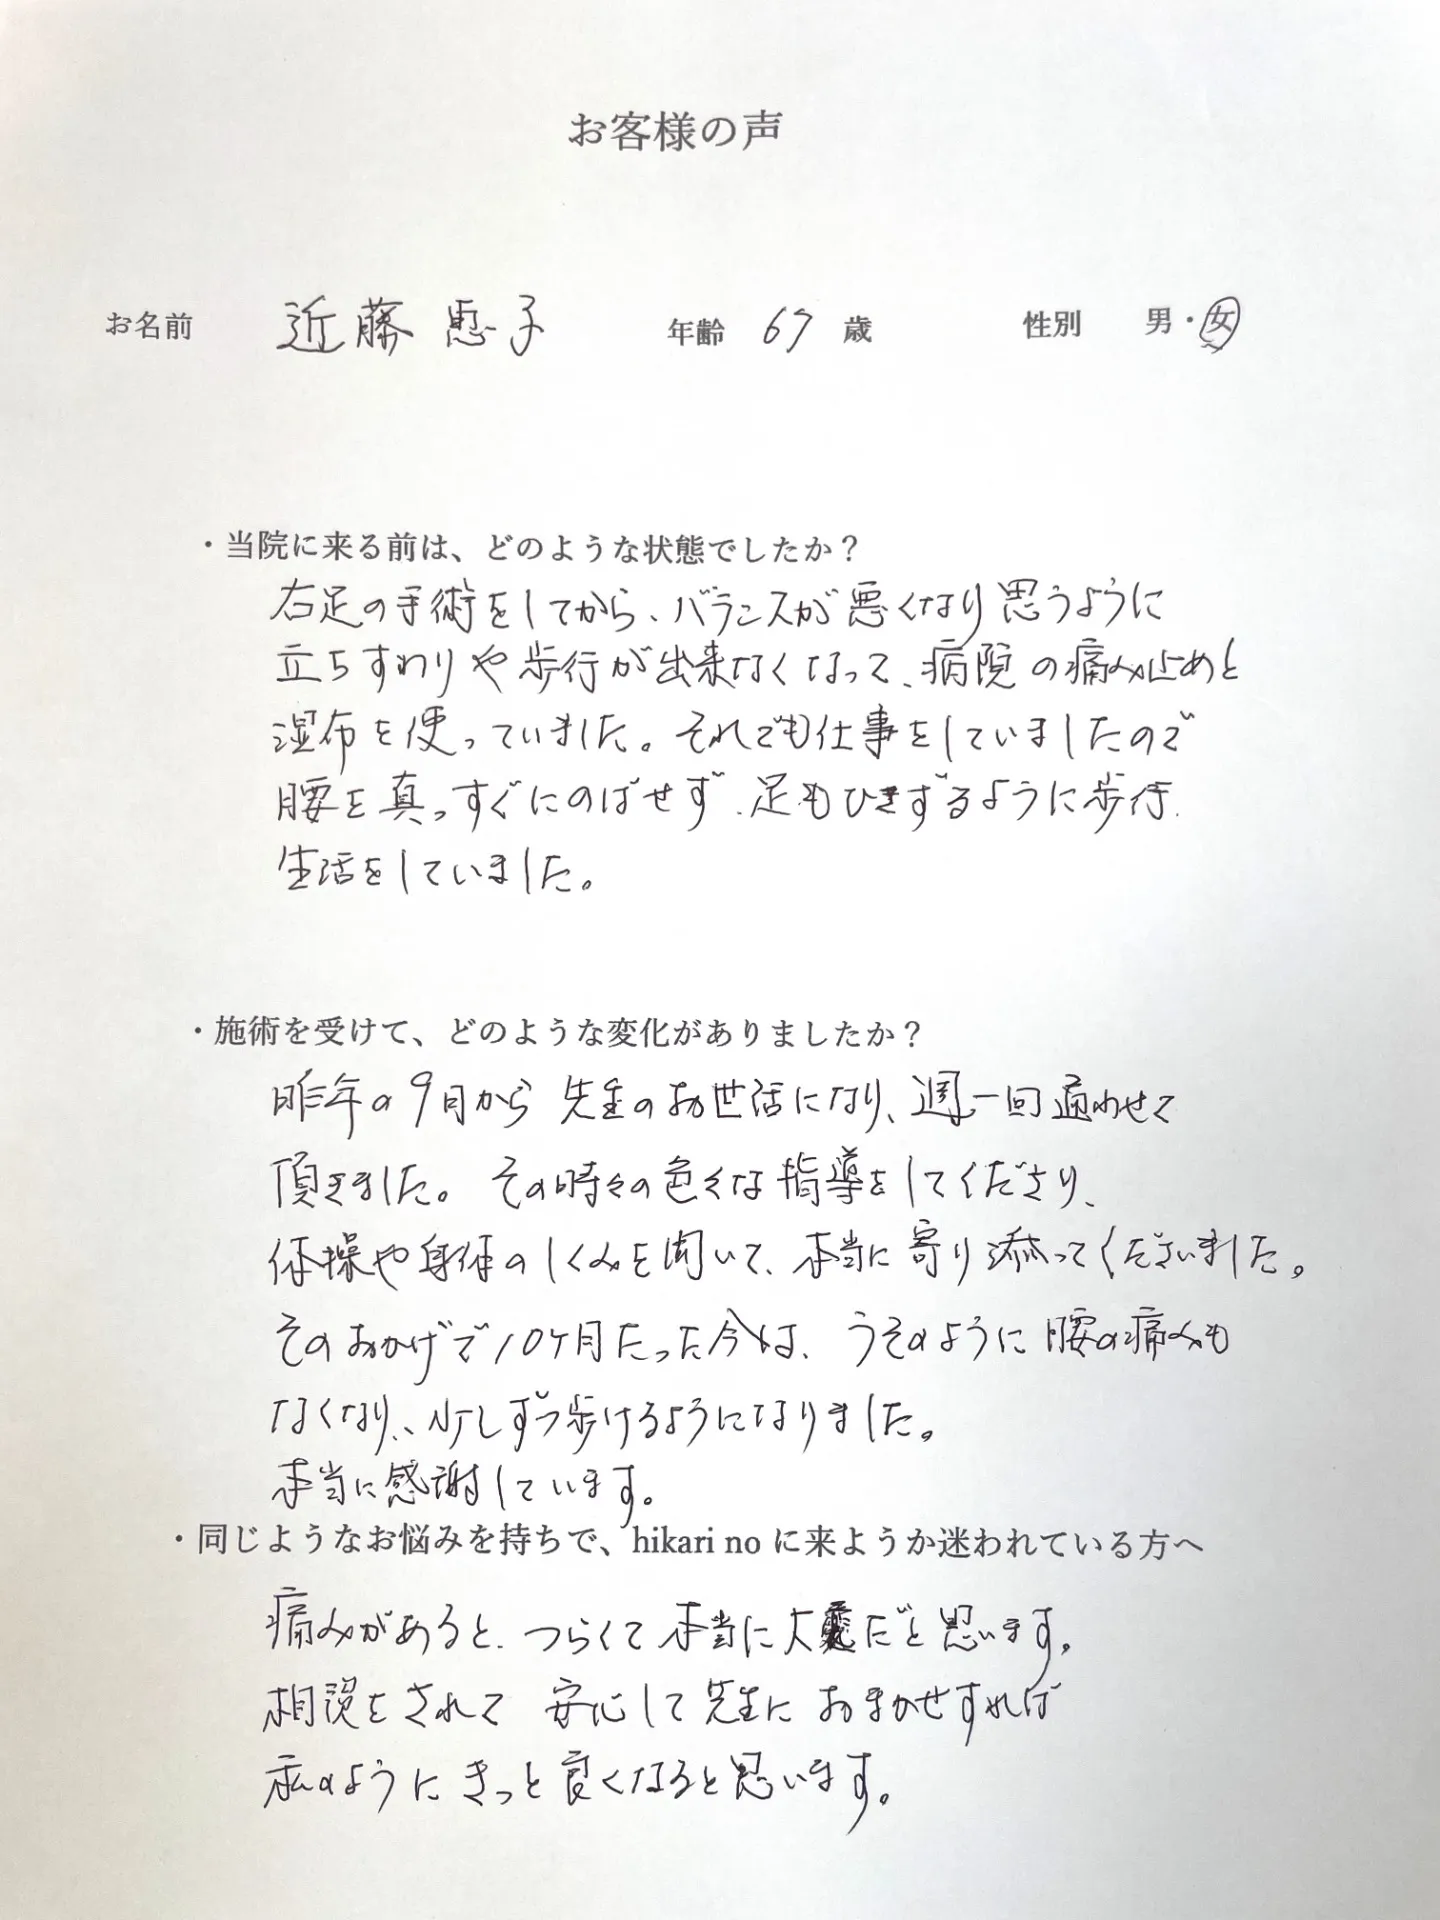 お客様の声
お名前 近藤 恵子 年齢 67 歳 性別 男・女
・当院に来る前は、どのような状態でしたか？
右足の手術をしてから、バランスが悪くなり思うように
立ちすわりや歩行が出来なくなって、病院の痛み止めと
湿布を使っていました。それでも仕事をしていましたので
腰を真っすぐにのばせず、足もひきずるように歩行、
生活をしていました。
・施術を受けて、どのような変化がありましたか？
昨年の9月から先生のお世話になり、週一回通わせて
頂きました。その時々の色々な指導をしてくださり、
体操や身体のしくみを聞いて、本当に寄り添ってくださいました。
そのおかげで10ヶ月たった今は、うそのように腰の痛みも
なくなり、少しずつ歩けるようになりました。
本当に感謝しています。
・同じようなお悩みを持ちで、hikari no に来ようか迷われている方へ
痛みがあると、つらくて本当に大変だと思います。
相談をされて安心して先生におまかせすれば
私のようにきっと良くなると思います。